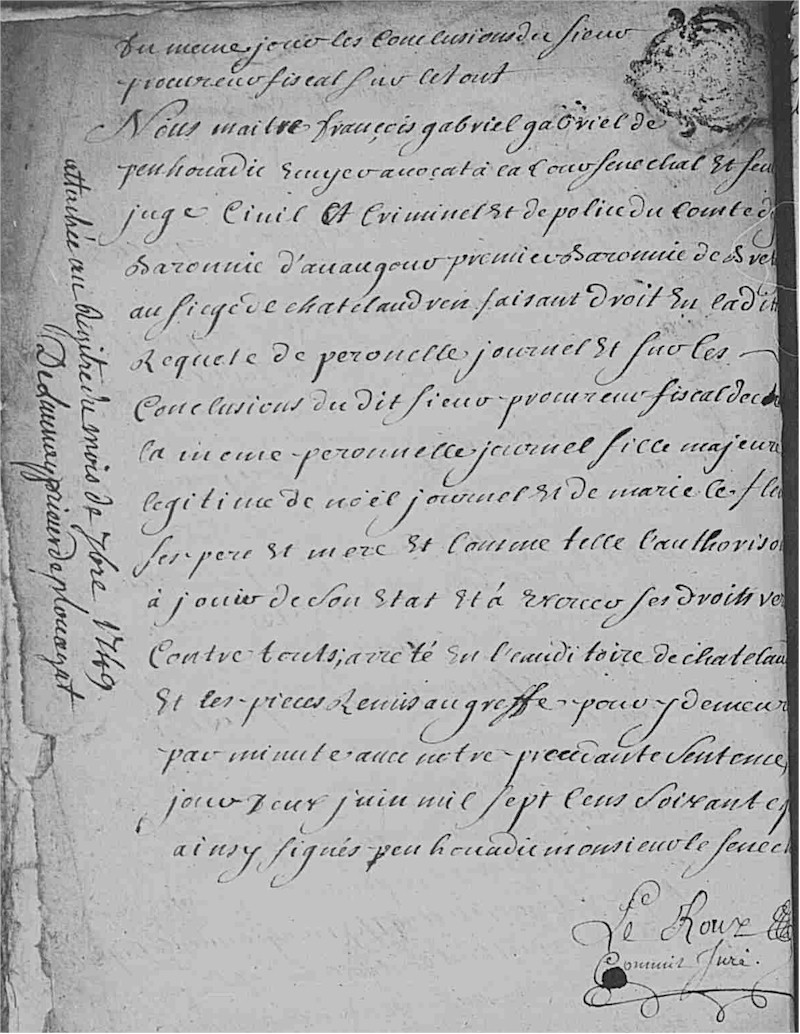 Du meme jour les Conclusions du sieur
procureur fiscal sur le tout
Nous maitre françois gabriel gabriel de
penhouadic Ecuyer avocat à la Cour senechal Et seul
juge Civil Et Criminel Et de police du Comté
Baronnie d'avaugour premier Baronnie de Bret
au siege de chatelaudren faisant droit En ladit
Requete de peronelle journel Et sur les
Conclusions du dit sieur procureur fiscal
la meme peronnelle journel fille majeure
legitime de noël journel Et de marie le
ses pere Et mere Et comme telle l'authoriso
à jouir de son Etat Et à Exercer ses droits ver
Contre touts, arrété En l'auditoire de chatelau
Et les pieces Remis au greffe pour y demeur
par minute avec notre presante sentence
jour Deux juin mil sept Cens soixant
ainsy signés penhouadic monsieur le senec
Le Roux
Commis Juré.
attachée au Régitre du mois de 7bre 1749
Delaunay prieur de plouagat